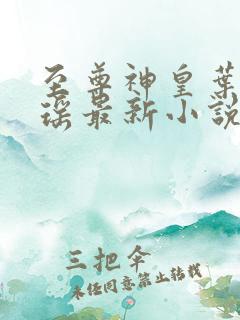 至尊神皇葉
瑶最新小說
三把伞
未经同意禁止转载